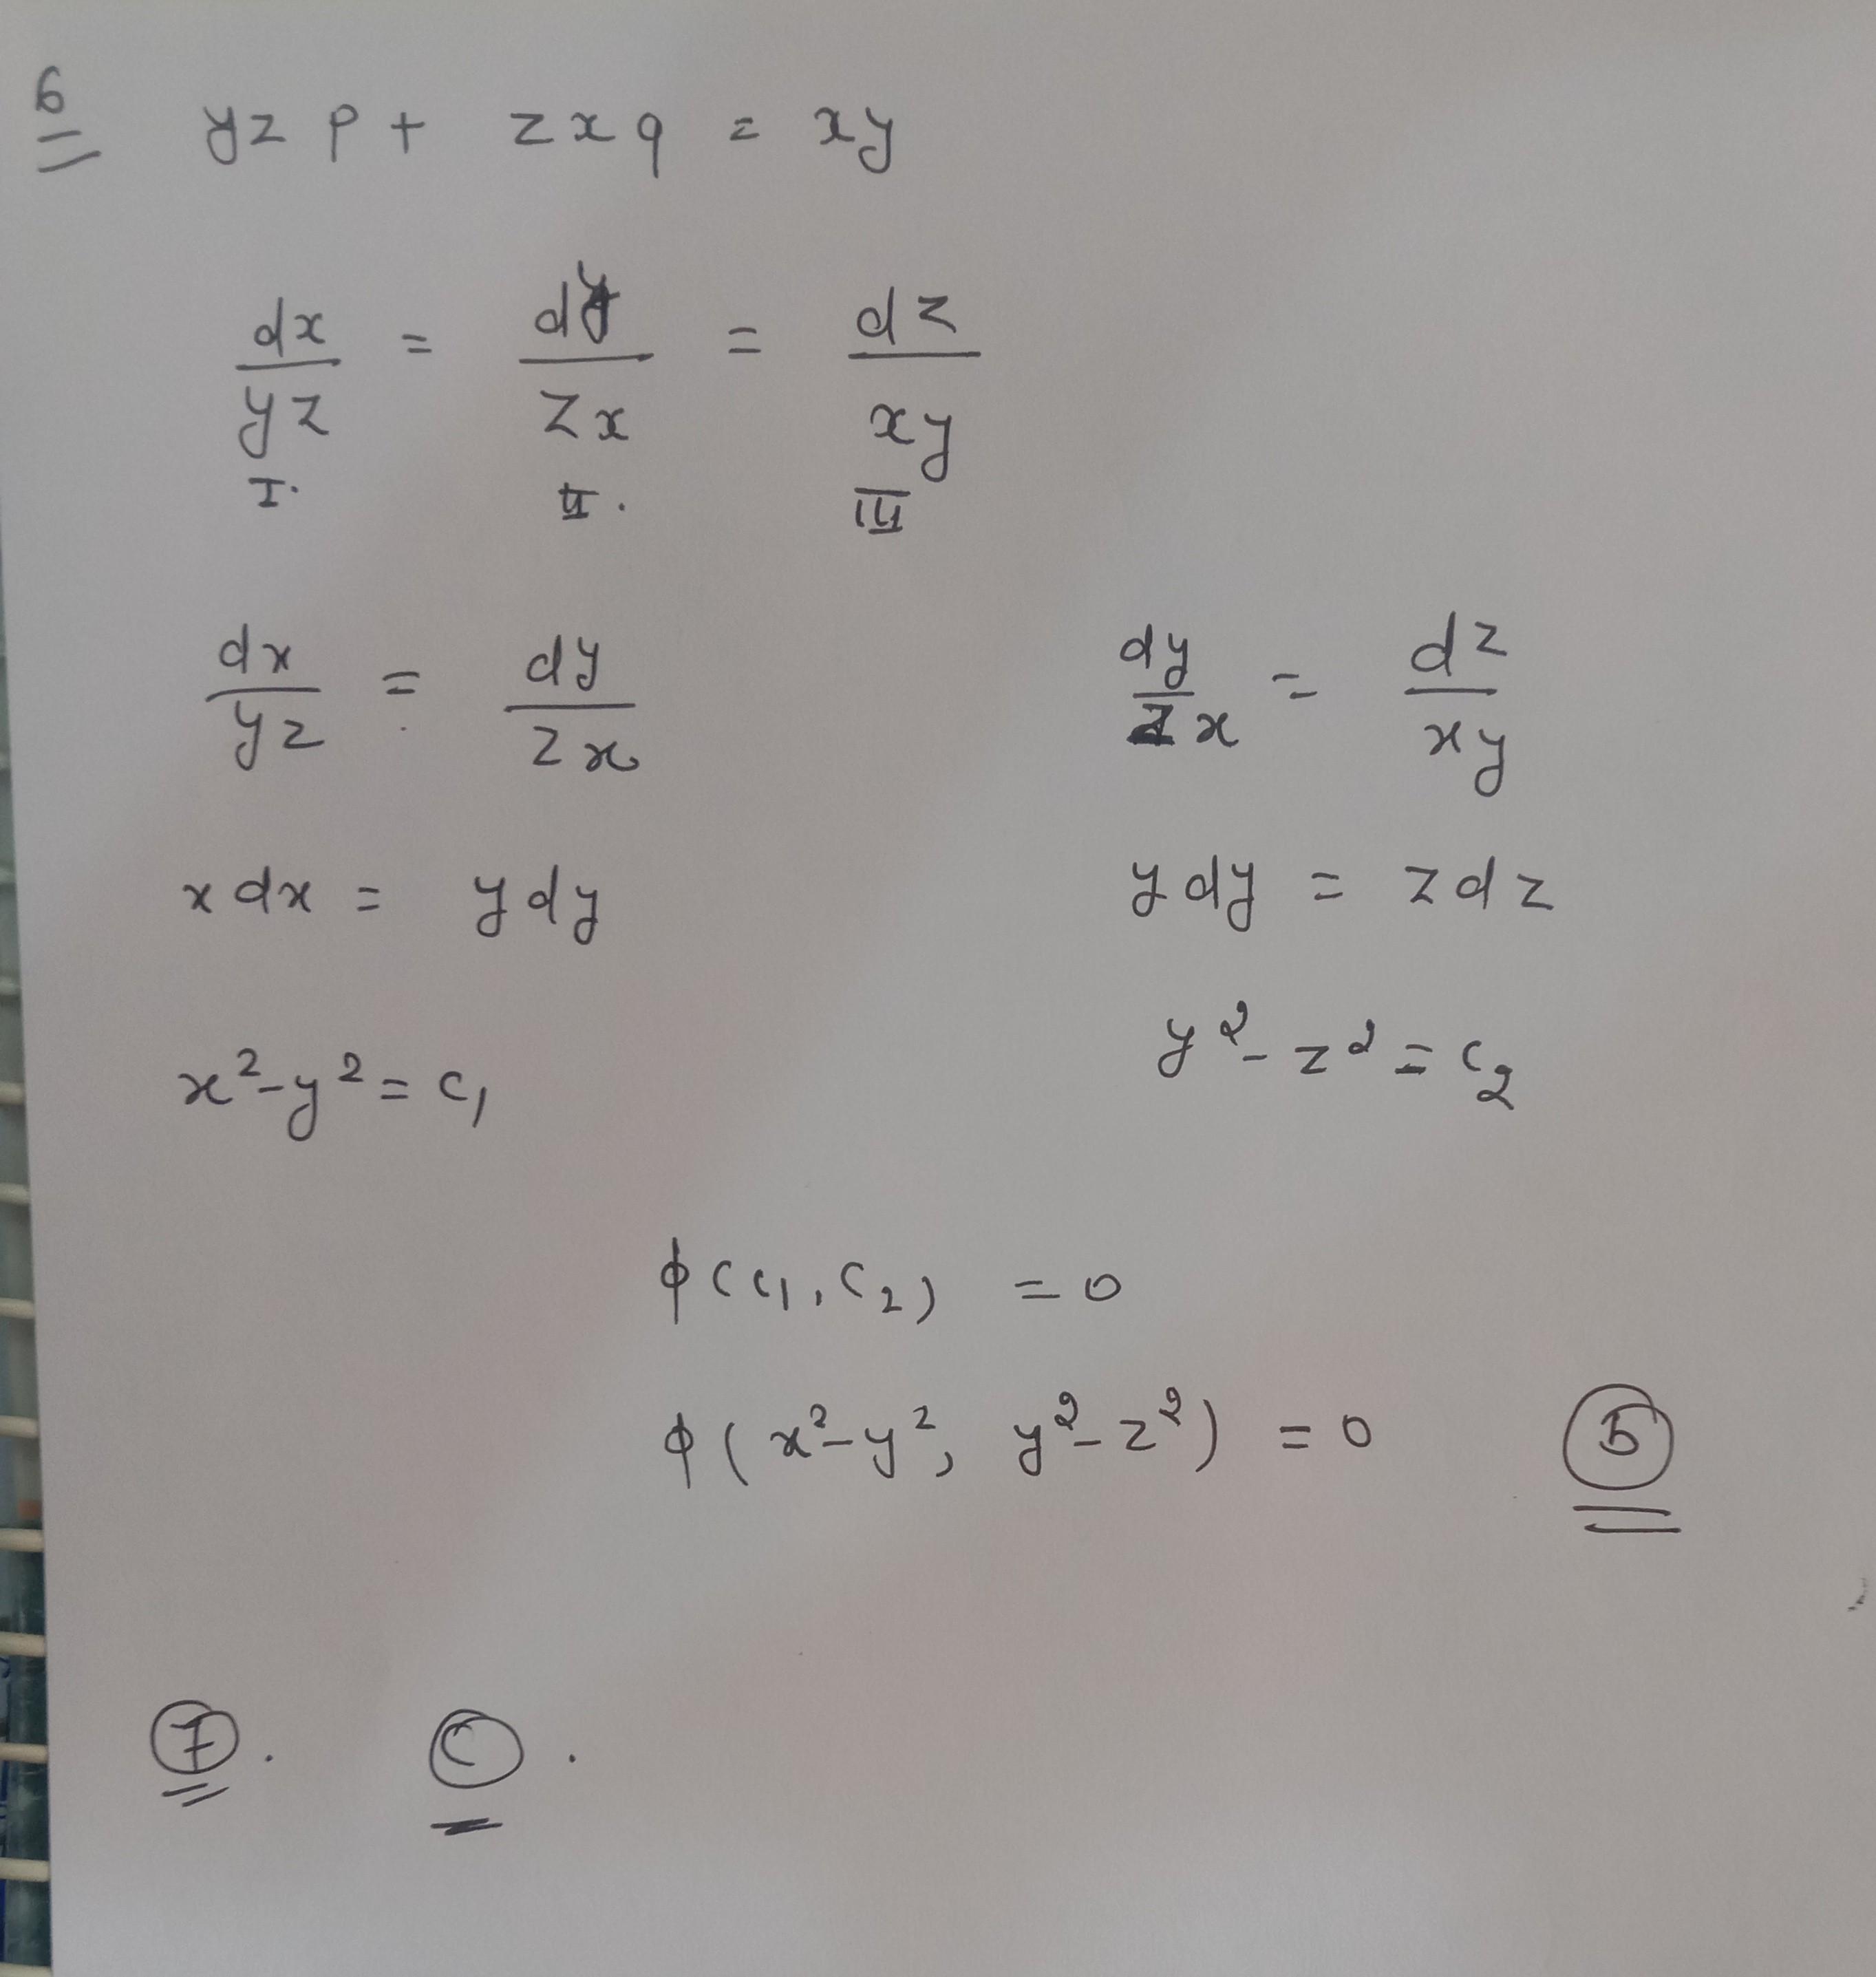 6 yz p + zxq = xy
dx/yz = dy/zx = dz/xy
I. II. III
dx/yz = dy/zx
dy/zx = dz/xy
x dx = y dy
y dy = z dz
x² - y² = c₁
y² - z² = c₂
ϕ(c₁, c₂) = 0
ϕ(x² - y², y² - z²) = 0
7. C.